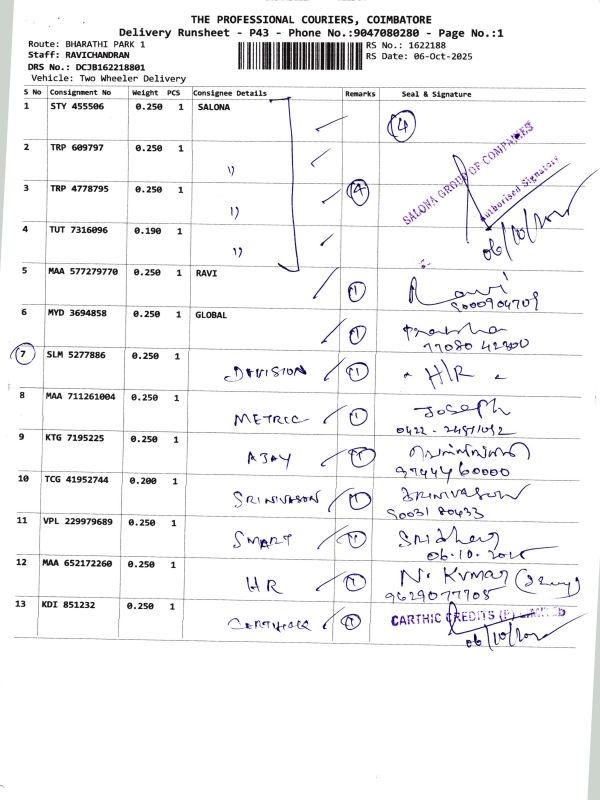 THE PROFESSIONAL COURIERS, COIMBATORE
Delivery Runsheet - P43 - Phone No.:9047080280 - Page No.:1
Route: BHARATHI PARK 1 RS No.: 1622188
Staff: RAVICHANDRAN RS Date: 06-Oct-2025
DRS No.: DCJB162218801
Vehicle: Two Wheeler Delivery
S No Consignment No Weight PCS Consignee Details Remarks Seal & Signature
1 STY 455506 0.250 1 SALONA 4
2 TRP 609797 0.250 1 11 SALONA GROUP OF COMPANIES
3 TRP 4778795 0.250 1 11 4 Authorised Signatory
4 TUT 7316096 0.190 1 11 06/10/2025
5 MAA 577279770 0.250 1 RAVI 1 Ravi
9000904709
6 MYD 3694858 0.250 1 GLOBAL 1 Prabha
77080 42300
7 SLM 5277886 0.250 1 DIVISION 1 H/R
8 MAA 711261004 0.250 1 METRIC 1 Joseph
9 KTG 7195225 0.250 1 AJAY 1
9744460000
10 TCG 41952744 0.200 1 SRINIVASON 1 SRINIVASON
90031 80433
11 VPL 229979689 0.250 1 SMART 1 SRidhar
06.10.2025
12 MAA 652172260 0.250 1 HR 1 N. KUMAR
9629077705
13 KDI 851232 0.250 1 1 CARTHIC CREDITS (P) LIMITED
06/10/2025